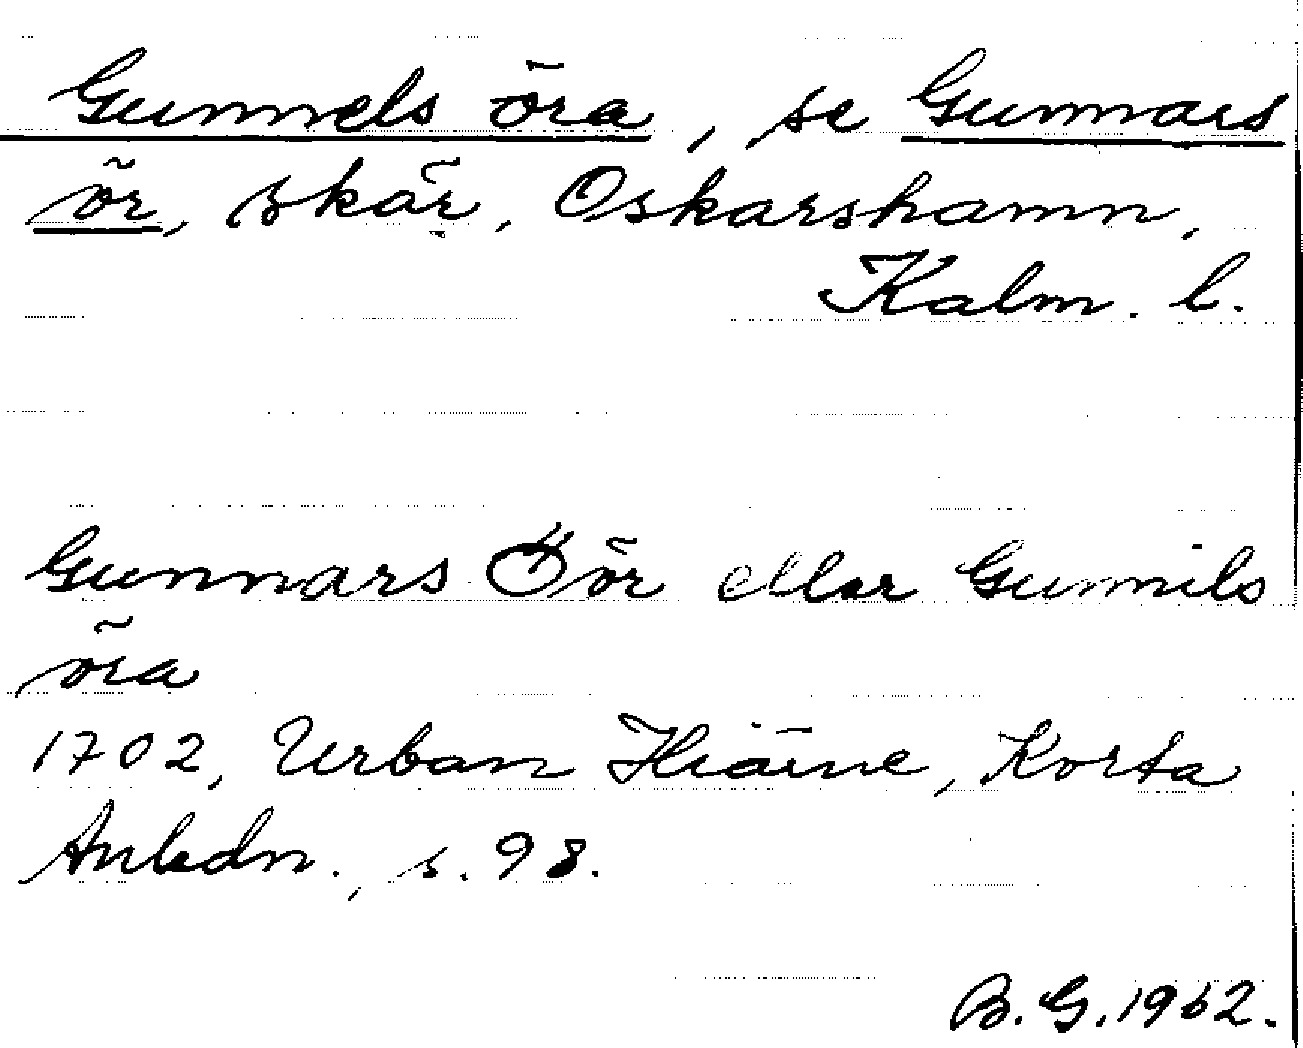 Gunnels öra, se Gunnars
ör, skär, Oskarshamn,
Kalm. l.
Gunnars Öör eller Gunnils
öra
1702, Urban Hiäine, Korta
Anledn., s. 98.
B. G. 1962.